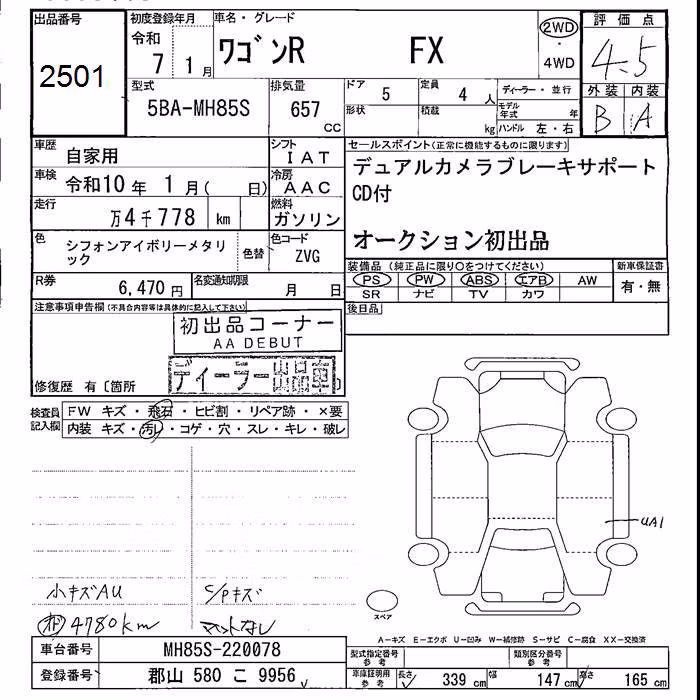 出品番号
2501
初度登録年月
令和 7 1月
車名・グレード
ワゴンR FX
2WD
4WD
評価点
4.5
外装 内装
B A
型式
5BA-MH85S
排気量
657 CC
ドア 5
定員 4人
ディーラー・並行
形状
積載 kg
モデル年式 年
ハンドル 左・右
車歴
自家用
シフト
IAT
車検
令和10年 1月( 日)
冷房
AAC
走行
万4千778 km
燃料
ガソリン
色
シフォンアイボリーメタリック
色替
色コード
ZVG
R券
6,470円
名変通知期限
月 日
セールスポイント(正常に機能するものに限ります)
デュアルカメラブレーキサポート
CD付
オークション初出品
装備品(純正品に限り○をつけてください)
PS PW ABS エアB AW
SR ナビ TV カワ
新車保証書
有・無
後日品
注意事項申告欄(不具合内容等は具体的に記入して下さい)
初出品コーナー
AA DEBUT
ディーラー出品車
修復歴 有〔箇所 〕
検査員記入欄
FW キズ・飛石・ヒビ割・リペア跡・×要
内装 キズ・汚レ・コゲ・穴・スレ・キレ・破レ
UA1
小キズAU S/Pキズ
4780km マットなし
スペア
A-キズ E-エクボ U-凹み W-補修跡 S-サビ C-腐食 XX-交換済
車台番号
MH85S-220078
登録番号
郡山 580 こ 9956
型式指定番号 参考
類別区分番号 参考
車庫証明用 参考
長さ 339cm 幅 147cm 高さ 165cm